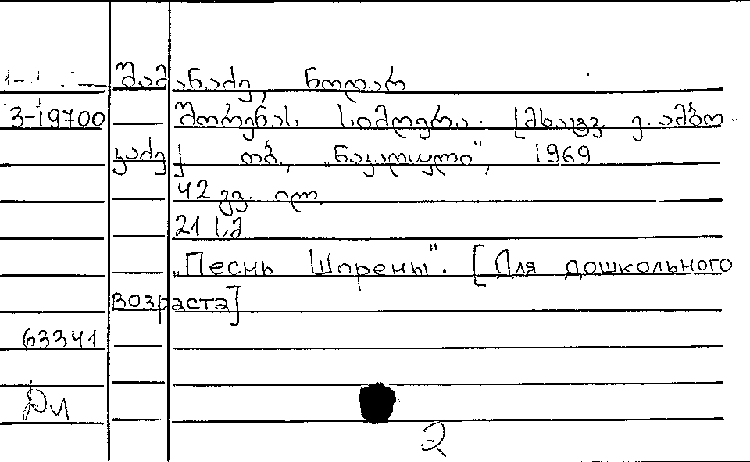 შამანაძე, ნოდარ
3-19700 შორენას სიმღერა. [მხატვ. ე. ამბო-
კაძე] თბ., „ნაკადული", 1969
42 გვ. ილ.
21 სმ
„Песнь Шорены". [Для дошкольного
возраста]
63341
Дл
2